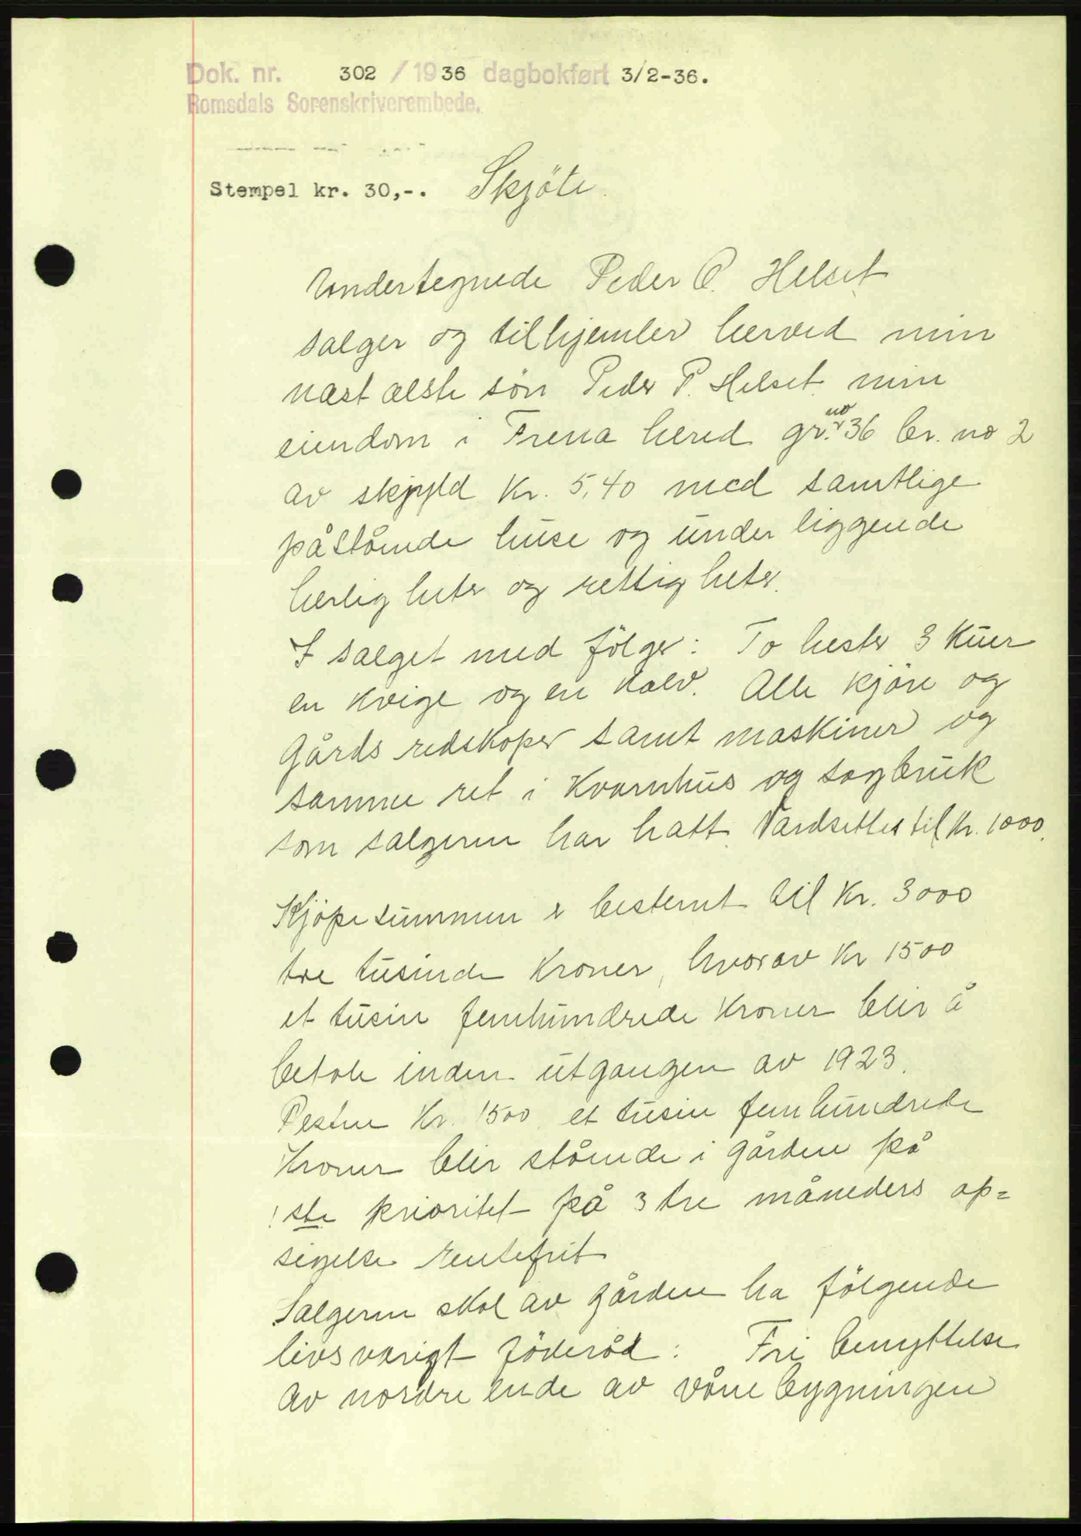 Dok. nr. 302 / 1936 dagbokført 3/2-36.
Romsdals Sorenskriverembede.
Stempel kr. 30,-. Skjöte.
Undertegnede Peder O. Helset
sælger og tilhjemler herved min
næst ælste sön Peder P. Helset min
eiendom i Frena hered gr. no 36 br. no 2
av skjyld Kr. 5,40 med samtlige
påstående huse og under liggende
herlig heter og rettig heter.
I salget med fölger: To hester 3 Kuer
en Kvige og en Kalv. Alle kjöre og
Gårds redskaper samt maskiner og
samme ret i Kvarnhus og sagbruk
som sælgeren har hatt. Værdsettes til Kr. 1000.
Kjöpesummen er bestemt til Kr. 3000
tre tusinde Kroner, hvorav Kr 1500
et tusin femhundrede Kroner blir å
betale inden utgangen av 1923.
Resten Kr. 1500 et tusin femhundrede
Kroner blir stående i gården på
1ste prioritet på 3 tre måneders op=
sigelse rentefrit
Sælgeren skal av gården ha fölgende
livsvarigt föderåd: Fri benyttelse
av nordre ende av våne bygningen